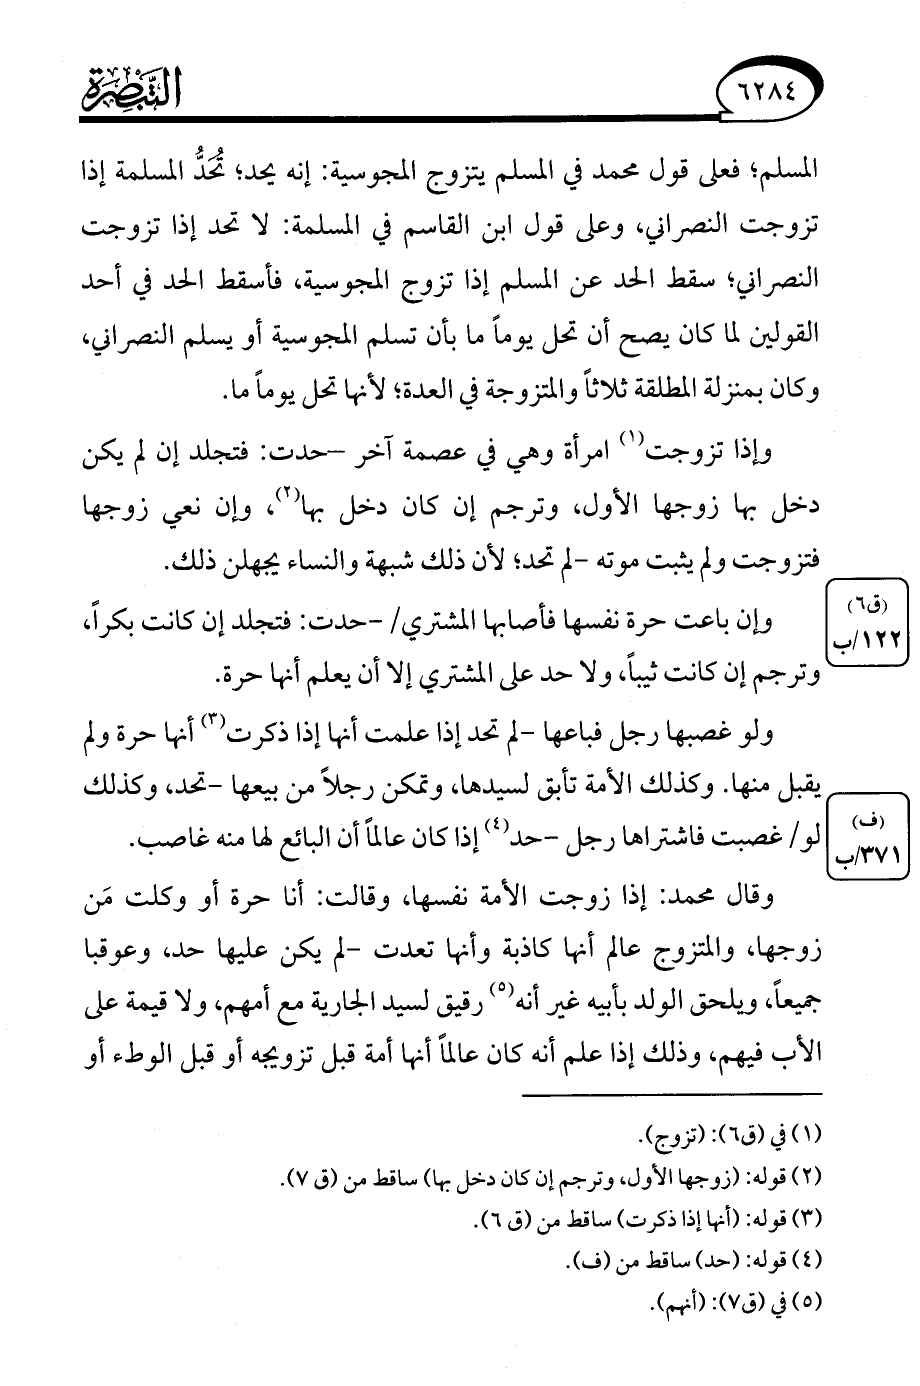 ٦٢٨٤
التبصرة
المسلم؛ فعلى قول محمد في المسلم يتزوج المجوسية: إنه يحد؛ تُحَدُّ المسلمة إذا
تزوجت النصراني، وعلى قول ابن القاسم في المسلمة: لا تحد إذا تزوجت
النصراني؛ سقط الحد عن المسلم إذا تزوج المجوسية، فأسقط الحد في أحد
القولين لما كان يصح أن تحل يوماً ما بأن تسلم المجوسية أو يسلم النصراني،
وكان بمنزلة المطلقة ثلاثاً والمتزوجة في العدة؛ لأنها تحل يوماً ما.
وإذا تزوجت(١) امرأة وهي في عصمة آخر -حدت: فتجلد إن لم يكن
دخل بها زوجها الأول، وترجم إن كان دخل بها(٢)، وإن نعي زوجها
فتزوجت ولم يثبت موته -لم تحد؛ لأن ذلك شبهة والنساء يجهلن ذلك.
وإن باعت حرة نفسها فأصابها المشتري/ -حدت: فتجلد إن كانت بكراً،
(ق٦)
١٢٢/ب
وترجم إن كانت ثيباً، ولا حد على المشتري إلا أن يعلم أنها حرة.
ولو غصبها رجل فباعها -لم تحد إذا علمت أنها إذا ذكرت(٣) أنها حرة ولم
يقبل منها. وكذلك الأمة تأبق لسيدها، وتمكن رجلاً من بيعها -تحد، وكذلك
لو/ غصبت فاشتراها رجل -حد(٤) إذا كان عالماً أن البائع لها منه غاصب.
(ف)
٣٧١/ب
وقال محمد: إذا زوجت الأمة نفسها، وقالت: أنا حرة أو وكلت مَن
زوجها، والمتزوج عالم أنها كاذبة وأنها تعدت -لم يكن عليها حد، وعوقبا
جميعاً، ويلحق الولد بأبيه غير أنه(٥) رقيق لسيد الجارية مع أمهم، ولا قيمة على
الأب فيهم، وذلك إذا علم أنه كان عالماً أنها أمة قبل تزويجه أو قبل الوطء أو
(١) في (ق٦): (تزوج).
(٢) قوله: (زوجها الأول، وترجم إن كان دخل بها) ساقط من (ق ٧).
(٣) قوله: (أنها إذا ذكرت) ساقط من (ق ٦).
(٤) قوله: (حد) ساقط من (ف).
(٥) في (ق٧): (أنهم).